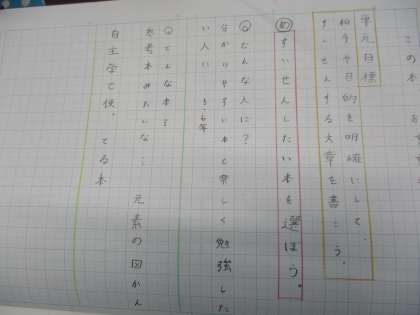 この本
単元目標
相手や目的を明確にして、
すいせんする文章を書こう。
め すいせんしたい本を選ぼう。
どんな人に?
分かりやすい本で楽しく勉強した
い人に 5・6年
どんな本?
参考本みたいな… 元素の図かん
自主学で使
てる本